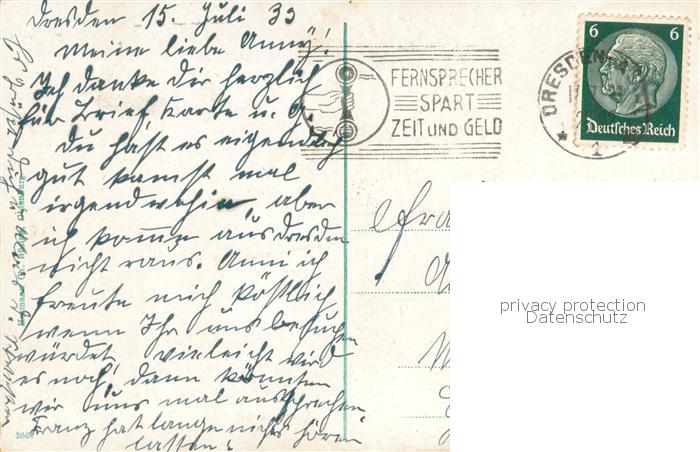 Dresden 15. Juli 33
Meine liebe Anny!
Ich danke dir herzlich
für Brief, Karte u.
Du hast es eigendlich
gut kamst mal
irgendwohin, aber
ich komme aus Dresden
nicht raus. Anni ich
freute mich köstlich
wenn Ihr uns besuchen
würdet, vieleicht wird
es noch, dann könnten
wir uns mal aussprechen
Franz hat lange nichts hören
lassen.
FERNSPRECHER
SPART
ZEIT UND GELD
DRESDEN
1
6 6
Deutsches Reich
Fra
privacy protection
Datenschutz